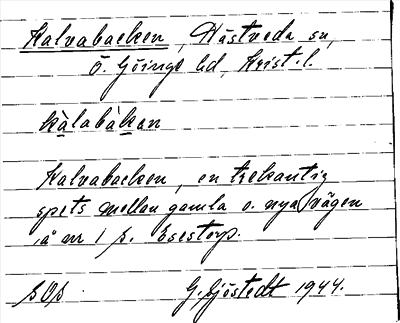 Kalvabacken, Hästveda sn,
Ö. Göinge hd, Krist. l.
kàlabàkan
Kalvabacken, en trekantig
spets mellan gamla o. nya vägen
å nr 1 s. Esestorp.
SOS G. Sjöstedt 1944.